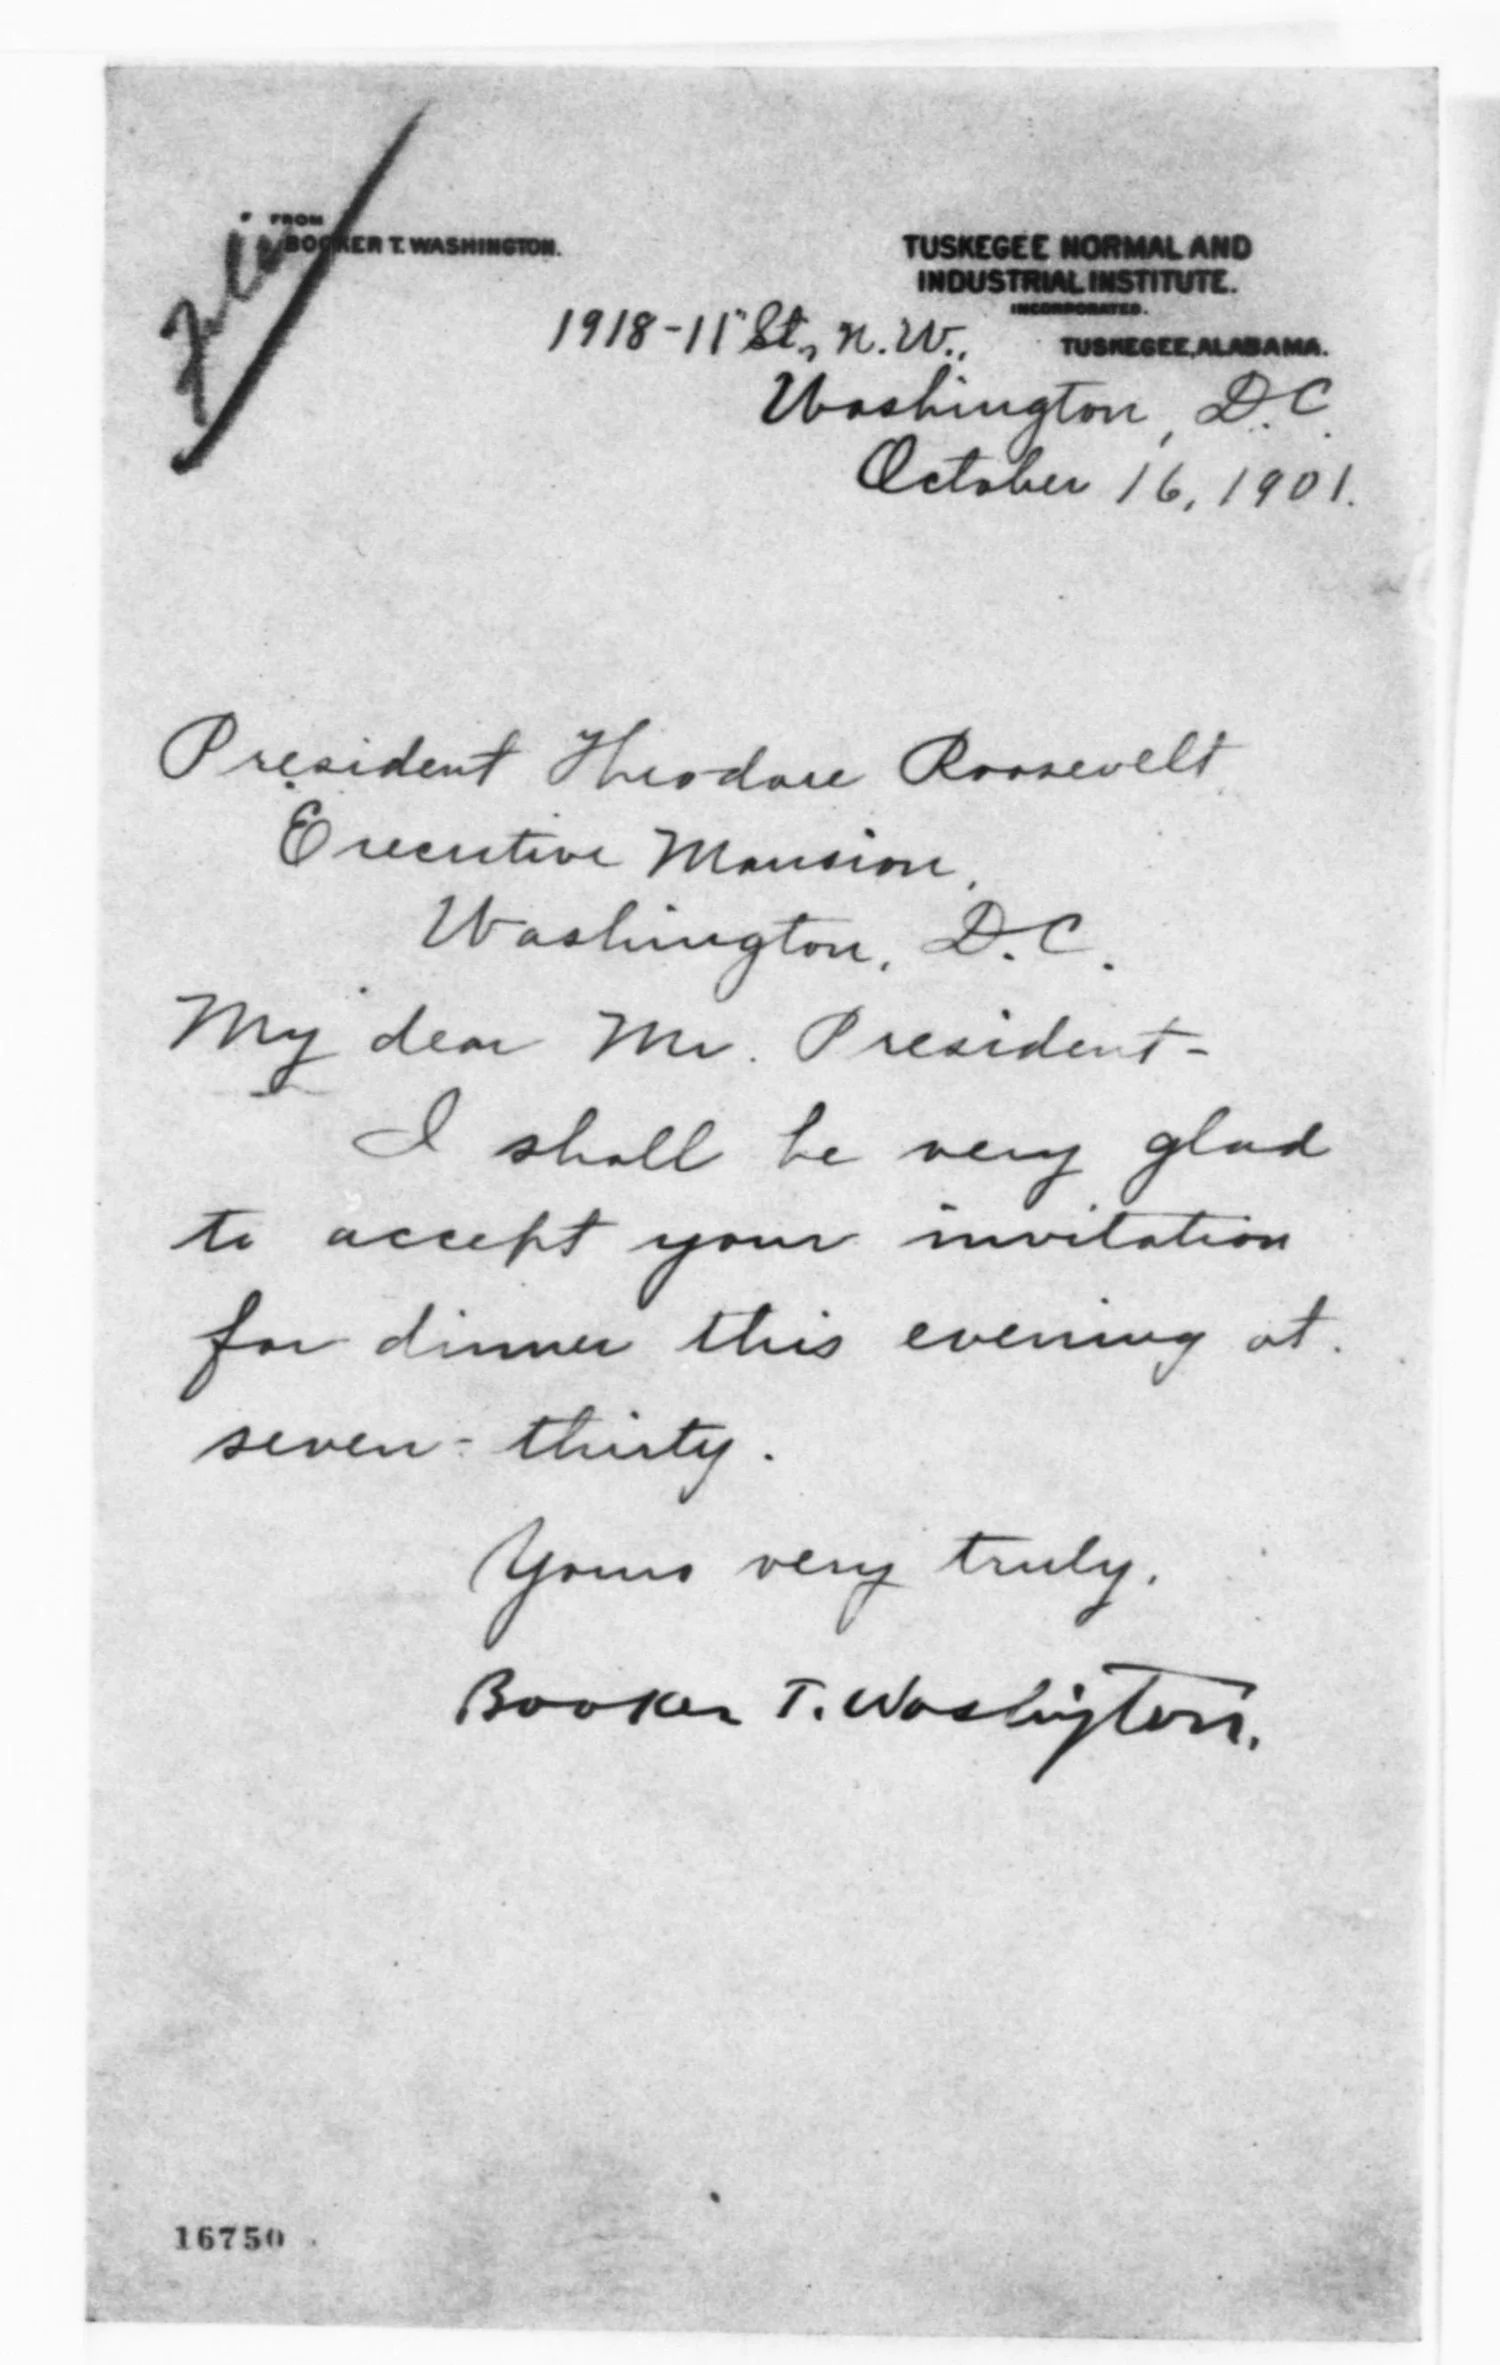 FROM
BOOKER T. WASHINGTON.
TUSKEGEE NORMAL AND
INDUSTRIAL INSTITUTE.
INCORPORATED.
TUSKEGEE, ALABAMA.
File
1918-11" St., N.W.,
Washington, D.C.
October 16, 1901.
President Theodore Roosevelt,
Executive Mansion,
Washington, D.C.
My dear Mr. President-
I shall be very glad
to accept your invitation
for dinner this evening at
seven-thirty.
Yours very truly,
Booker T. Washington.
16750